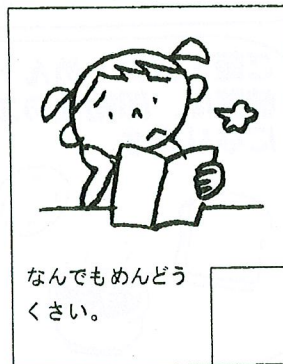 なんでもめんどう
くさい。